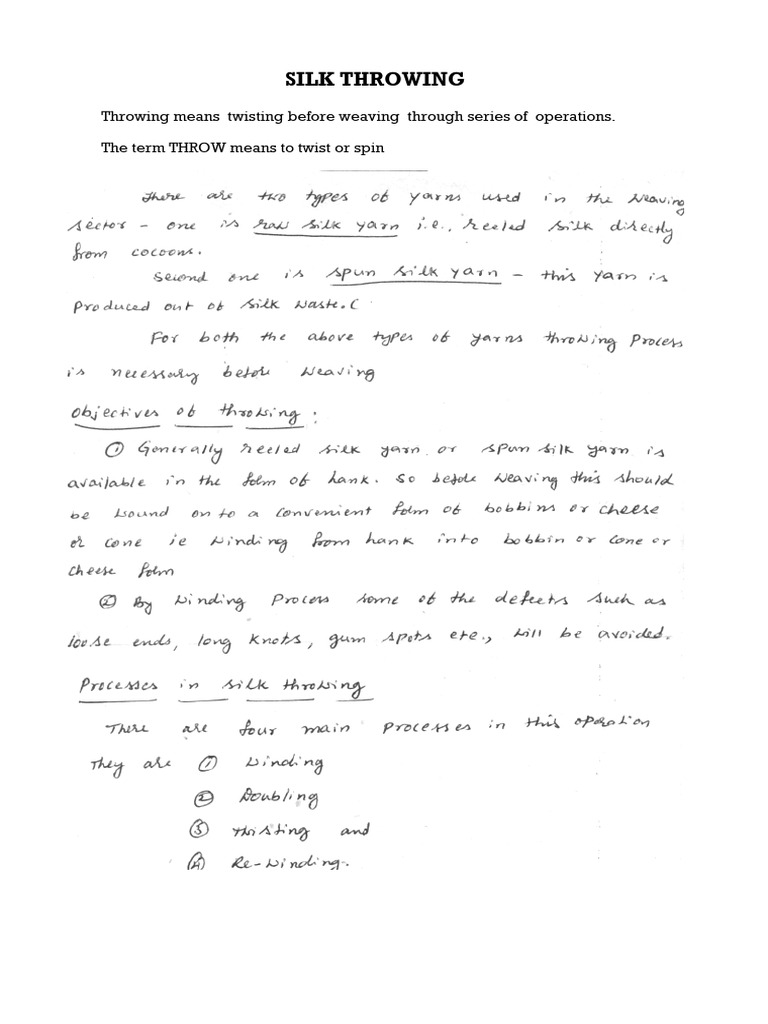 SILK THROWING
Throwing means twisting before weaving through series of operations.
The term THROW means to twist or spin
There are two types of yarns used in the weaving
sector - one is raw silk yarn i.e., reeled silk directly
from cocoons.
Second one is spun silk yarn - this yarn is
produced out of silk waste.(
For both the above types of yarns throwing process
is necessary before weaving
Objectives of throwing :
① Generally reeled silk yarn or spun silk yarn is
available in the form of hank. So before weaving this should
be wound on to a convenient form of bobbins or cheese
or cone ie winding from hank into bobbin or cone or
cheese form
② By winding process some of the defects such as
loose ends, long knots, gum spots etc., will be avoided.
Processes in silk throwing
There are four main processes in this operation
They are ① winding
② Doubling
③ twisting and
④ Re-winding.